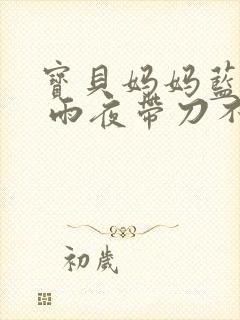 寶貝妈妈藍
雨夜帶刀不
初歲